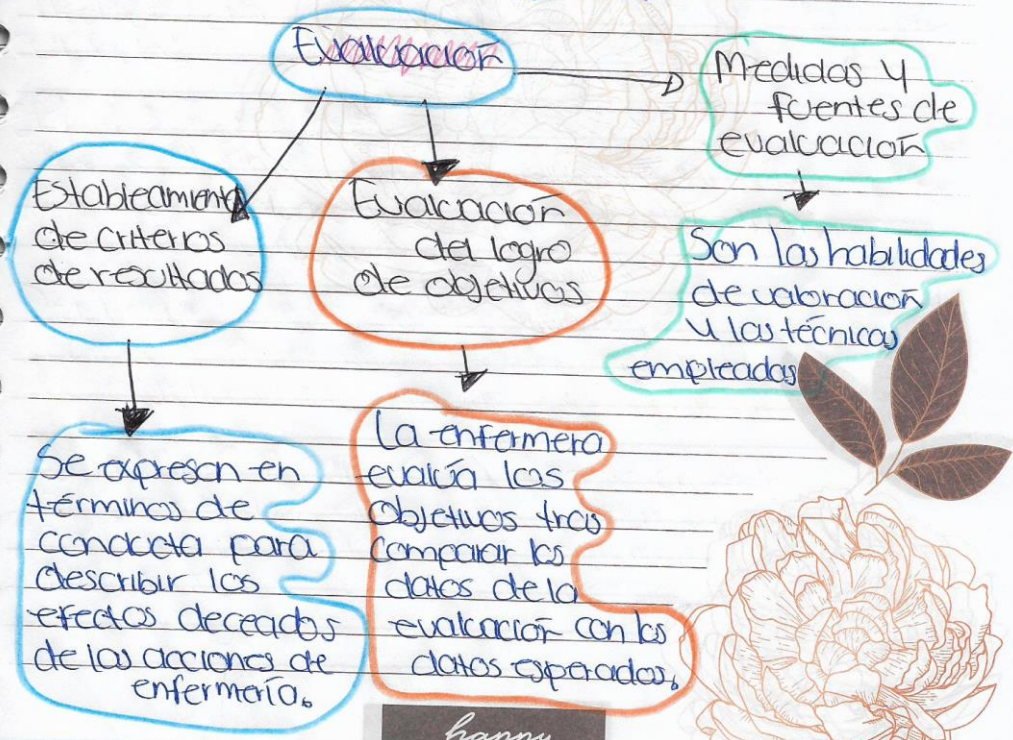 Evaluación
Medidas y
fuentes de
evaluación
Establecamiento
de criterios
de resultados
Evaluación
del logro
de objetivos
Son las habilidades
de valoración
y las técnicas
empleadas
Se expresan en
términos de
conducta para
describir los
efectos deceados
de las acciones de
enfermería.
La enfermera
evalúa los
objetivos tras
comparar los
datos de la
evaluación con los
datos esperados.
happy